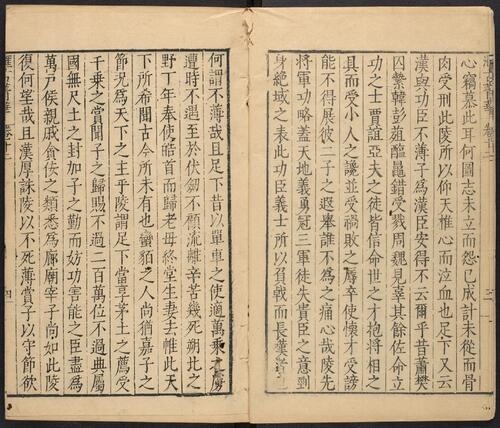 心竊慕此耳何圖志未立而怨已成計未從而骨
肉受刑此陵所以仰天椎心而泣血也足下又云
漢與功臣不薄子爲漢臣安得不云爾乎昔蕭樊
囚縶韓彭葅醢鼂錯受戮周魏見辜其餘佐命立
功之士賈誼亞夫之徒皆信命世之才抱將相之
具而受小人之讒並受禍敗之辱卒使懷才受謗
能不得展彼二子之遐舉誰不爲之痛心哉陵先
將軍功略蓋天地義勇冠三軍徒失貴臣之意剄
身絶域之表此功臣義士所以負戟而長歎者也
何謂不薄哉且足下昔以單車之使適萬乘之虜
遭時不遇至於伏劒不顧流離辛苦幾死朔北之
野丁年奉使皓首而歸老母終堂生妻去帷此天
下所希聞古今所未有也蠻貊之人尚猶嘉子之
節況爲天下之主乎陵謂足下當享茅土之薦受
千乗之賞聞子之歸賜不過二百萬位不過典屬
國無尺土之封加子之勤而妨功害能之臣盡爲
萬戸侯親戚貪佞之類悉爲廊廟宰子尚如此陵
復何望哉且漢厚誅陵以不死薄賞子以守節欲